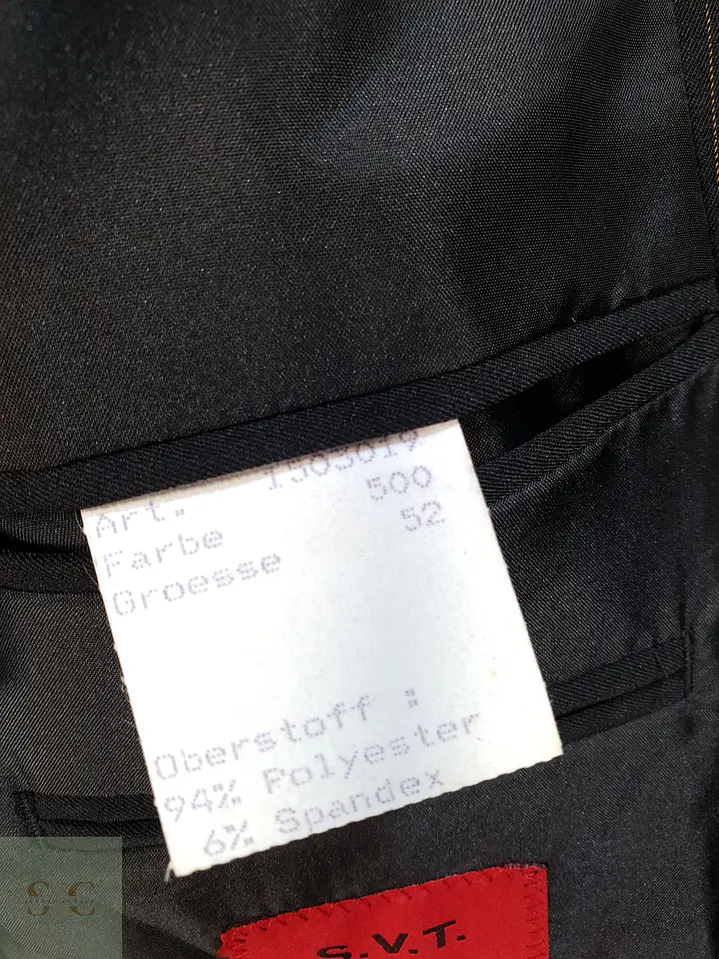 Art. 1503019
Farbe 500
Groesse 52
Oberstoff :
94% Polyester
6% Spandex
S.V.T.
S C